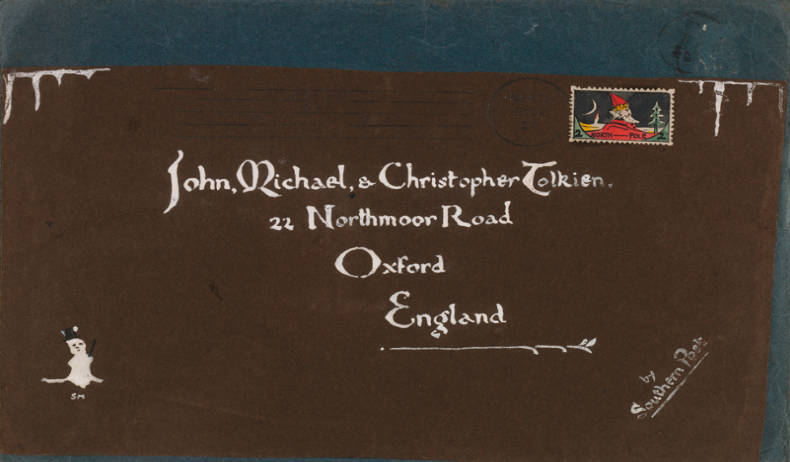 2 NORTH POLE 2
John, Michael, & Christopher Tolkien.
22 Northmoor Road
Oxford
England
SM
by
Southern Post